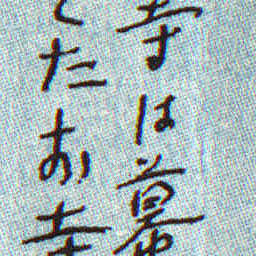 寺は墓
てたお寺